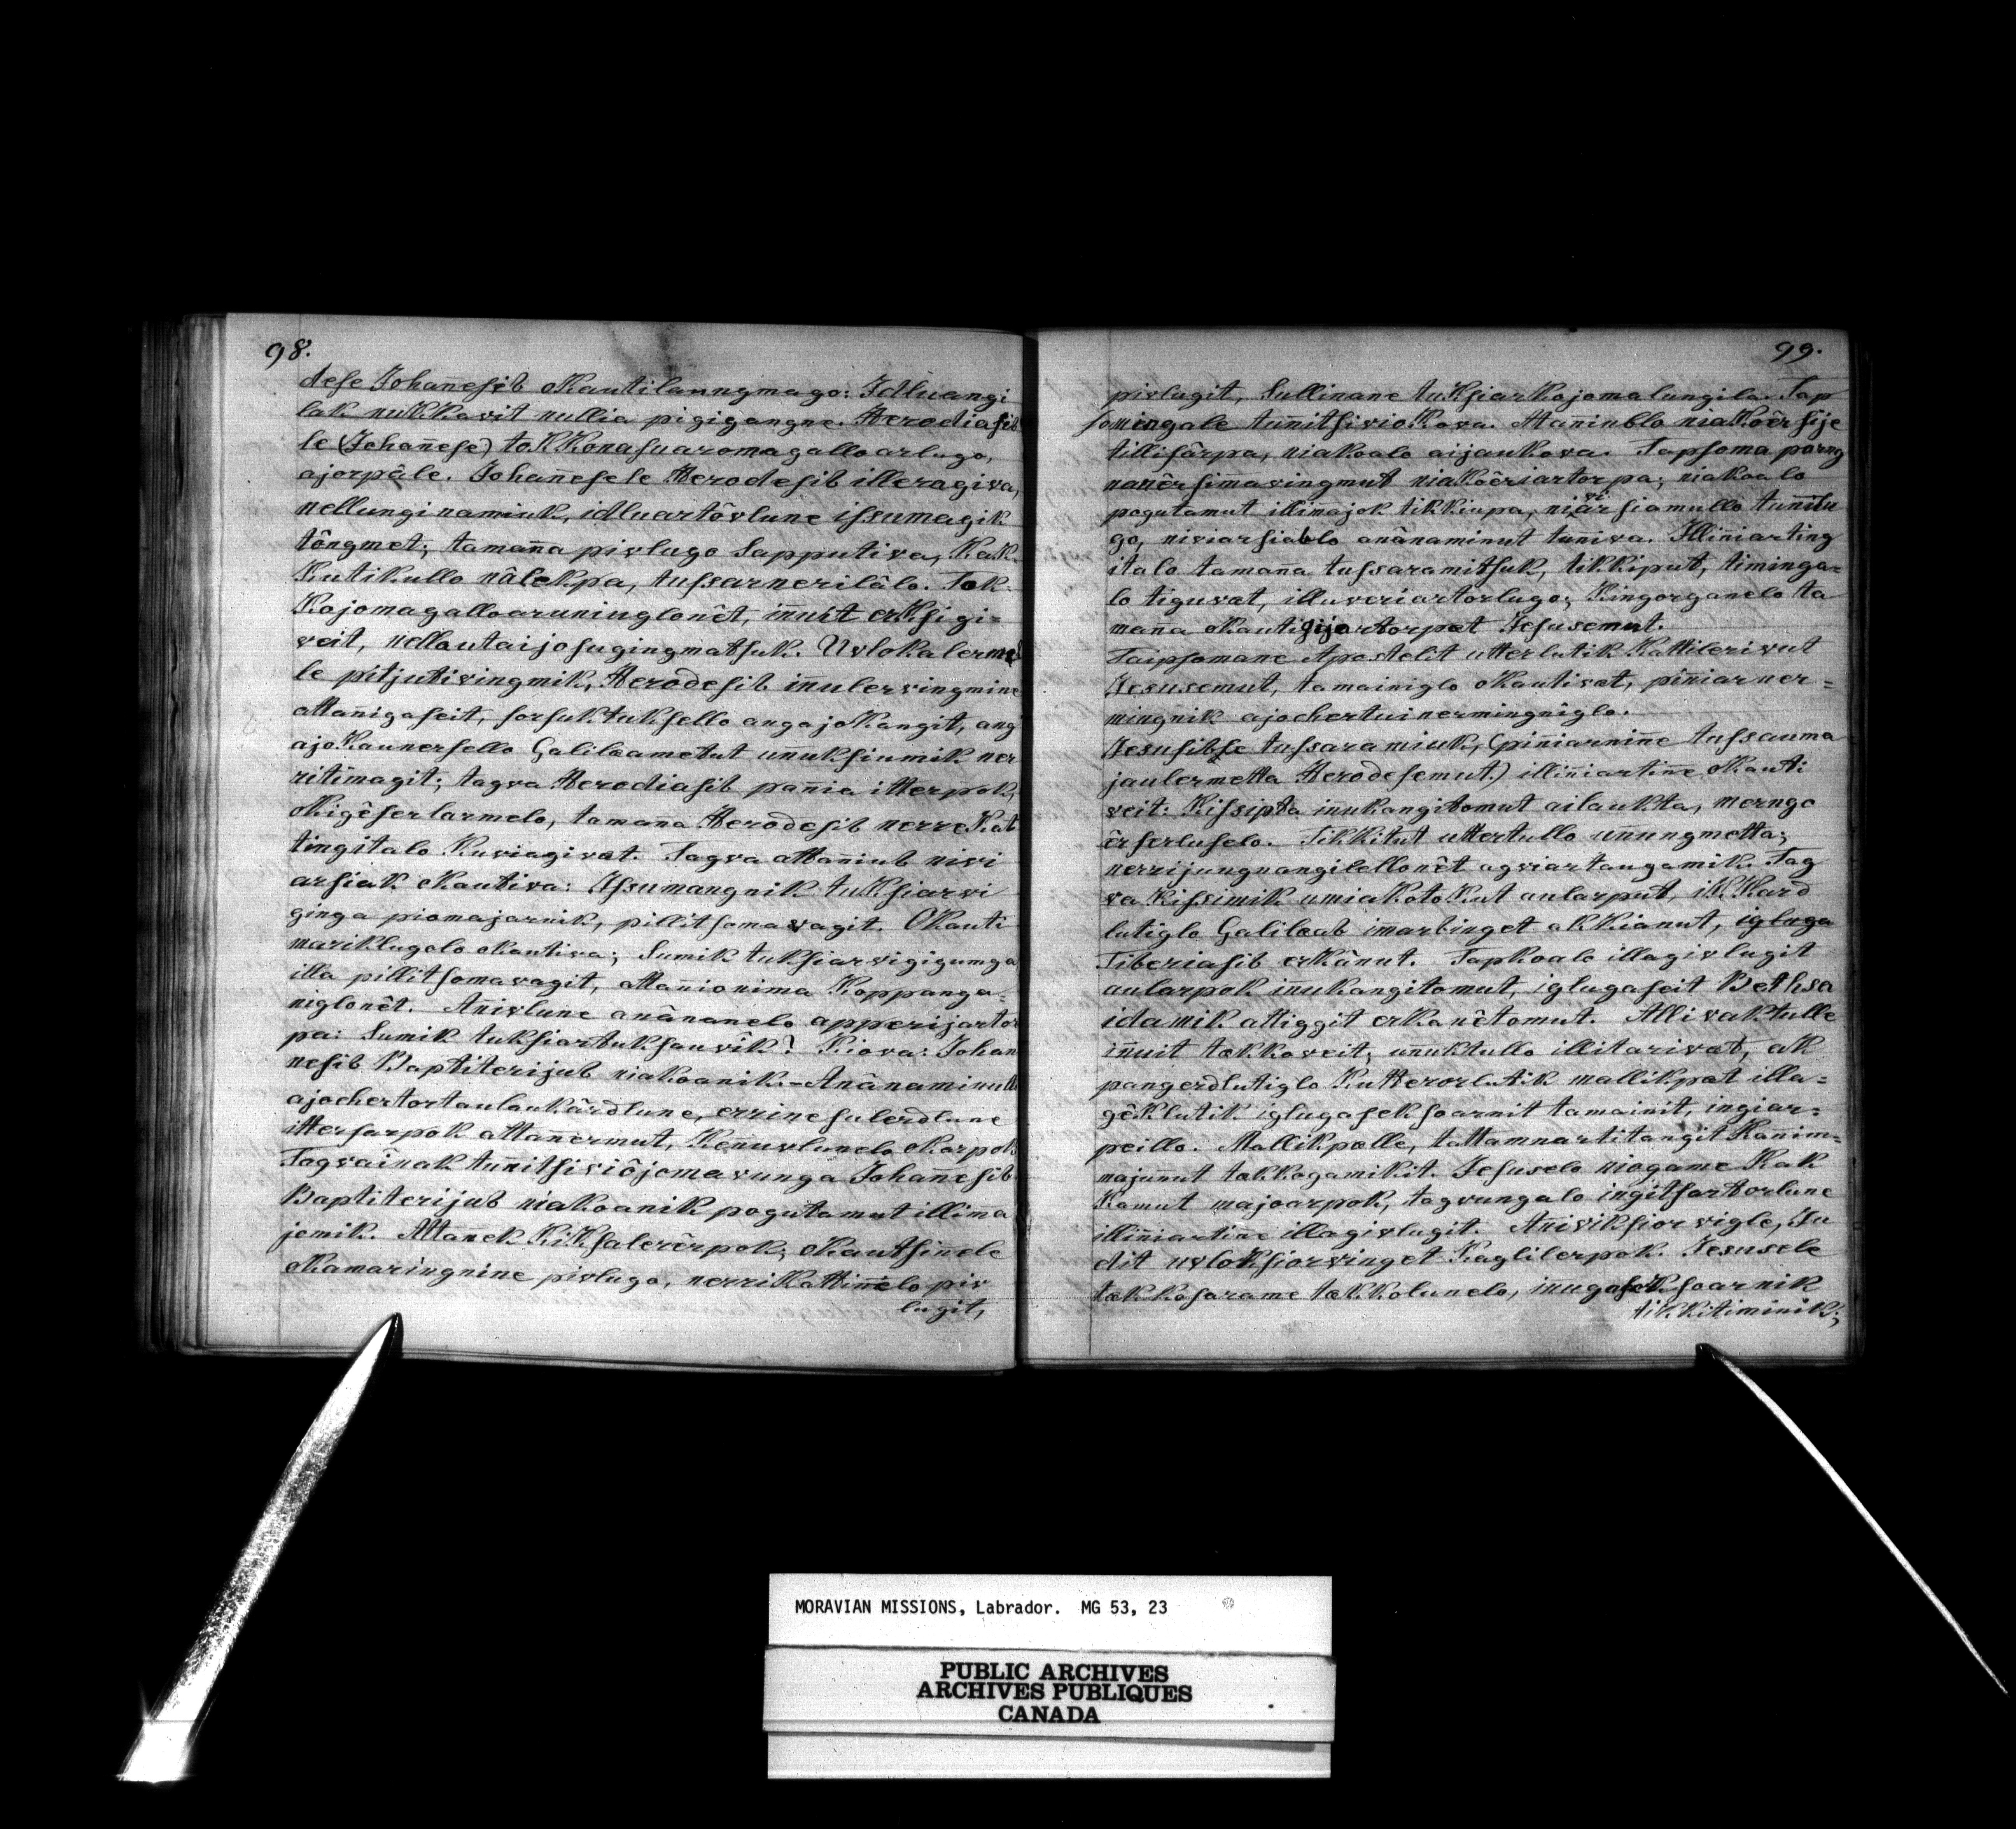 98.
dese Johan̄esib oKautilaungmago: Idluangi
lak nukkavit nullia pigigangne. Herodiasib
le (Johan̄ese) toKKonasuaromagalloarlugo,
ajorpâle. Johan̄esele Herodesib illeragiva,
nellunginamiuk, idluartôvlune issumagik
tôngmet; taman̄a pivlugo Sapputiva, KaK-
Kutikullo nâlekpa, tussarnerilâlo. Tok-
Kojomagalloaruninglonêt, in̄uit erKsigi-
veit, nellautaijosugingmatsuk. Uvlokalermet
le pitjutivingmik, Herodesib in̄ulervingmine
attan̄igaseit, sorsuktuksello angajoKangit, ang
ajoKaunersello Galilæametut un̄uksiumik ner
ritimagit; tagva Herodiasib pan̄ia itterpok,
oKigêserlarmelo, taman̄a Herodesib nerreKat
tingitalo Kuviagivat. Tagva attan̄iub nivi
arsiak oKautiva: Issumangnik tuKsiarvi
ginga piomajarnik, pillitsomavagit. OKauti
mariklugolo oKautiva; Sumik tuksiarvigigumga
illa pillitsomavagit, attanionima Koppanga-
niglonêt. An̄ivlune anânanelo apperijartor
pa: Sumik tuksiartuksauvik? Kiova: Johan
nesib Baptiterijub niakoanik.- Anânaminullo
ajochertortaulaukârdlune, errinesulerdlune
ittersarpok attan̄ermut, Ken̄uvlunelo oKarpok
Tagvainak tun̄itsiviôjomavunga Johan̄esib
Baptiterijub niakoanik pogutamut illin̄a
jemik. Attan̄ek KiKsalerêrpok; oKautsin̄ele
oKamaringnine pivlugo, nerriKattin̄elo piv
lugit,
99.
pivlugit, Sullinane tuKsiarKojomalungila. Tap
somingale tun̄itsivioKova. Attan̄iublo niaKoêrsije
tillisârpa, niakoalo aijaukova. Tapsoma parng
nan̄êrsimavingmut niakôêriartorpa; niakoalo
pogutamut illin̄ajok tikkiupa, niviarsiamullo tun̄ilu
go, niviarsiablo anânaminut tuniva. Illiniarting
italo taman̄a tussaramitsuk, tikkiput, timinga-
lo tiguvat, illuveriartorlugo; Kingorganelo ta
man̄a oKautigijartorpat Jesusemut.
Taipsomane Apostelit utterlutik Kattilerivut
Jesusemut, tamainiglo oKautivat, pin̄iarner-
mingnik ajochertuinermingniglo.
Jesusible tussaramiuk, (pin̄iarnin̄e tussauma
jaulermetta Herodesemut.) illin̄iartin̄e oKauti
veit: Kissipta in̄ukangitomut ailaukta, merngo
êrserluselo. Tikkitut uttertullo un̄ungmetta;
nerrijungnangilellonêt agviartaugamik. Tag
va Kissimik umiakotoKut aularput, iKKard
lutiglo Galilæab im̄arbinget aKKianut, igluga
Tiberiasib erKânut. Tapkoalo illagivlugit
aularpok in̄ukangitomut, iglugaseit Bethsa
idamik attiggit erkanêtomut. Allivaktulle
in̄uit takkoveit; un̄uktullo illitarivat, aK
pangerdlutiglo Kutterorlutik mallikpat illa-
gêklutik iglugaseksoarnit tamainit, ingiar-
peillo. Mallikpalle, tattamnartitangit Kan̄im-
majun̄ut takkogamikit. Jesuselo niogame KaK
Kamut majoarpok, tagvungalo ingitsartorlune
illin̄iartin̄e illagivlugit. An̄iviksiorvigle, Ju
dit uvloKsiorvinget Kaglilerpok. Jesusele
takkosarame takkolunelo, inugaseksoarnik
tiKKitiminik;
MORAVIAN MISSIONS, Labrador. MG 53, 23
PUBLIC ARCHIVES
ARCHIVES PUBLIQUES
CANADA